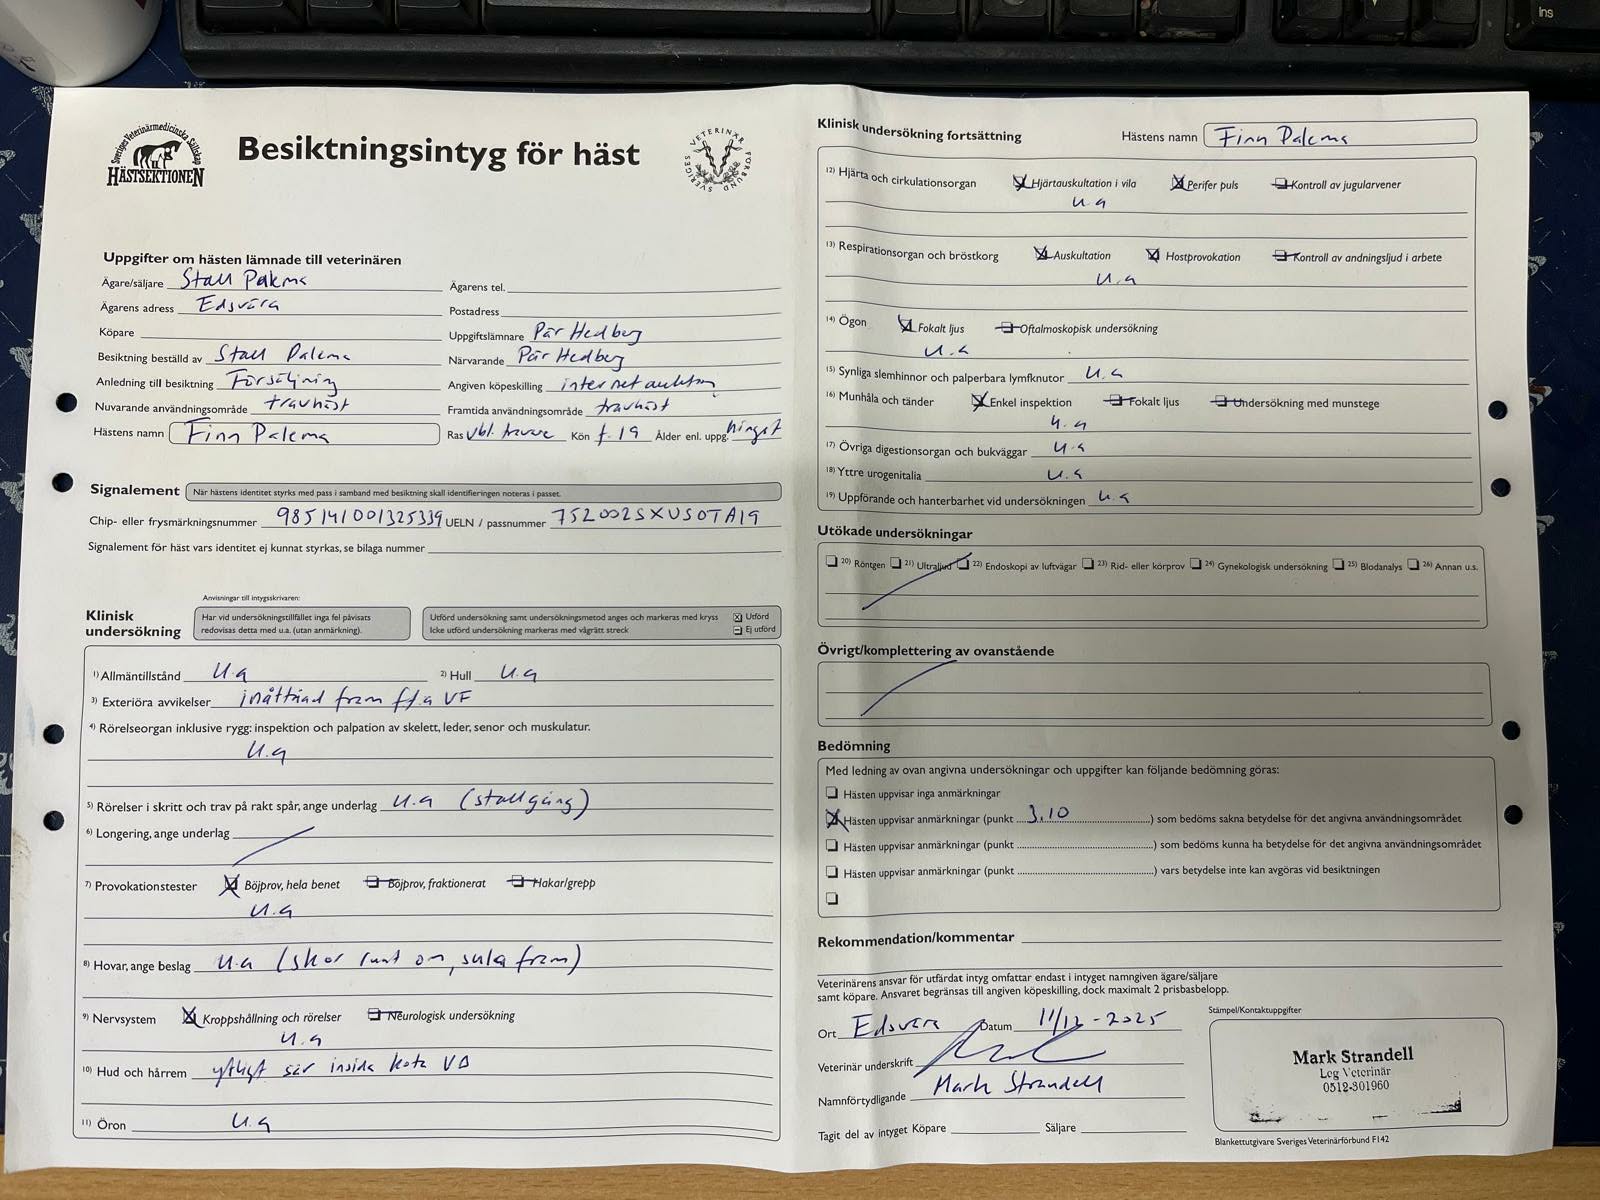 Ins
Sveriges Veterinärmedicinska Sällskap
HÄSTSEKTIONEN
Besiktningsintyg för häst
SVERIGES VETERINÄR FÖRBUND
Uppgifter om hästen lämnade till veterinären
Ägare/säljare Stall Palema
Ägarens tel.
Ägarens adress Edsvära
Postadress
Köpare
Uppgiftslämnare Pär Hedberg
Besiktning beställd av Stall Palema
Närvarande Pär Hedberg
Anledning till besiktning Försäljning
Angiven köpeskilling internetauktion
Nuvarande användningsområde travhäst
Framtida användningsområde travhäst
Hästens namn Finn Palema
Ras vbl. travare Kön f. 19 Ålder enl. uppg. hingst
Signalement När hästens identitet styrks med pass i samband med besiktning skall identifieringen noteras i passet.
Chip- eller frysmärkningsnummer 985141001325339 UELN / passnummer 752002SXUSOTA19
Signalement för häst vars identitet ej kunnat styrkas, se bilaga nummer
Anvisningar till intygsskrivaren:
Klinisk undersökning
Har vid undersökningstillfället inga fel påvisats
redovisas detta med u.a. (utan anmärkning).
Utförd undersökning samt undersökningsmetod anges och markeras med kryss Utförd
Icke utförd undersökning markeras med vågrätt streck Ej utförd
1) Allmäntillstånd u.a 2) Hull u.a
3) Exteriöra avvikelser inåttåad fram ffa VF
4) Rörelseorgan inklusive rygg: inspektion och palpation av skelett, leder, senor och muskulatur.
u.a
5) Rörelser i skritt och trav på rakt spår, ange underlag u.a (stallgång)
6) Longering, ange underlag
7) Provokationstester Böjprov, hela benet Böjprov, fraktionerat Hakar/grepp
u.a
8) Hovar, ange beslag u.a (skor runt om, sula fram)
9) Nervsystem Kroppshållning och rörelser Neurologisk undersökning
u.a
10) Hud och hårrem ytligt sår insida kota VB
11) Öron u.a
Klinisk undersökning fortsättning Hästens namn Finn Palema
12) Hjärta och cirkulationsorgan Hjärtauskultation i vila Perifer puls Kontroll av jugularvener
u.a
13) Respirationsorgan och bröstkorg Auskultation Hostprovokation Kontroll av andningsljud i arbete
u.a
14) Ögon Fokalt ljus Oftalmoskopisk undersökning
u.a
15) Synliga slemhinnor och palperbara lymfknutor u.a
16) Munhåla och tänder Enkel inspektion Fokalt ljus Undersökning med munstege
u.a
17) Övriga digestionsorgan och bukväggar u.a
18) Yttre urogenitalia u.a
19) Uppförande och hanterbarhet vid undersökningen u.a
Utökade undersökningar
20) Röntgen 21) Ultraljud 22) Endoskopi av luftvägar 23) Rid- eller körprov 24) Gynekologisk undersökning 25) Blodanalys 26) Annan u.s.
Övrigt/komplettering av ovanstående
Bedömning
Med ledning av ovan angivna undersökningar och uppgifter kan följande bedömning göras:
Hästen uppvisar inga anmärkningar
Hästen uppvisar anmärkningar (punkt 3,10) som bedöms sakna betydelse för det angivna användningsområdet
Hästen uppvisar anmärkningar (punkt ) som bedöms kunna ha betydelse för det angivna användningsområdet
Hästen uppvisar anmärkningar (punkt ) vars betydelse inte kan avgöras vid besiktningen
Rekommendation/kommentar
Veterinärens ansvar för utfärdat intyg omfattar endast i intyget namngiven ägare/säljare
samt köpare. Ansvaret begränsas till angiven köpeskilling, dock maximalt 2 prisbasbelopp.
Ort Edsvära Datum 11/12-2025
Veterinär underskrift
Namnförtydligande Mark Strandell
Tagit del av intyget Köpare Säljare
Stämpel/Kontaktuppgifter
Mark Strandell
Leg Veterinär
0512-301960
Blankettutgivare Sveriges Veterinärförbund F142